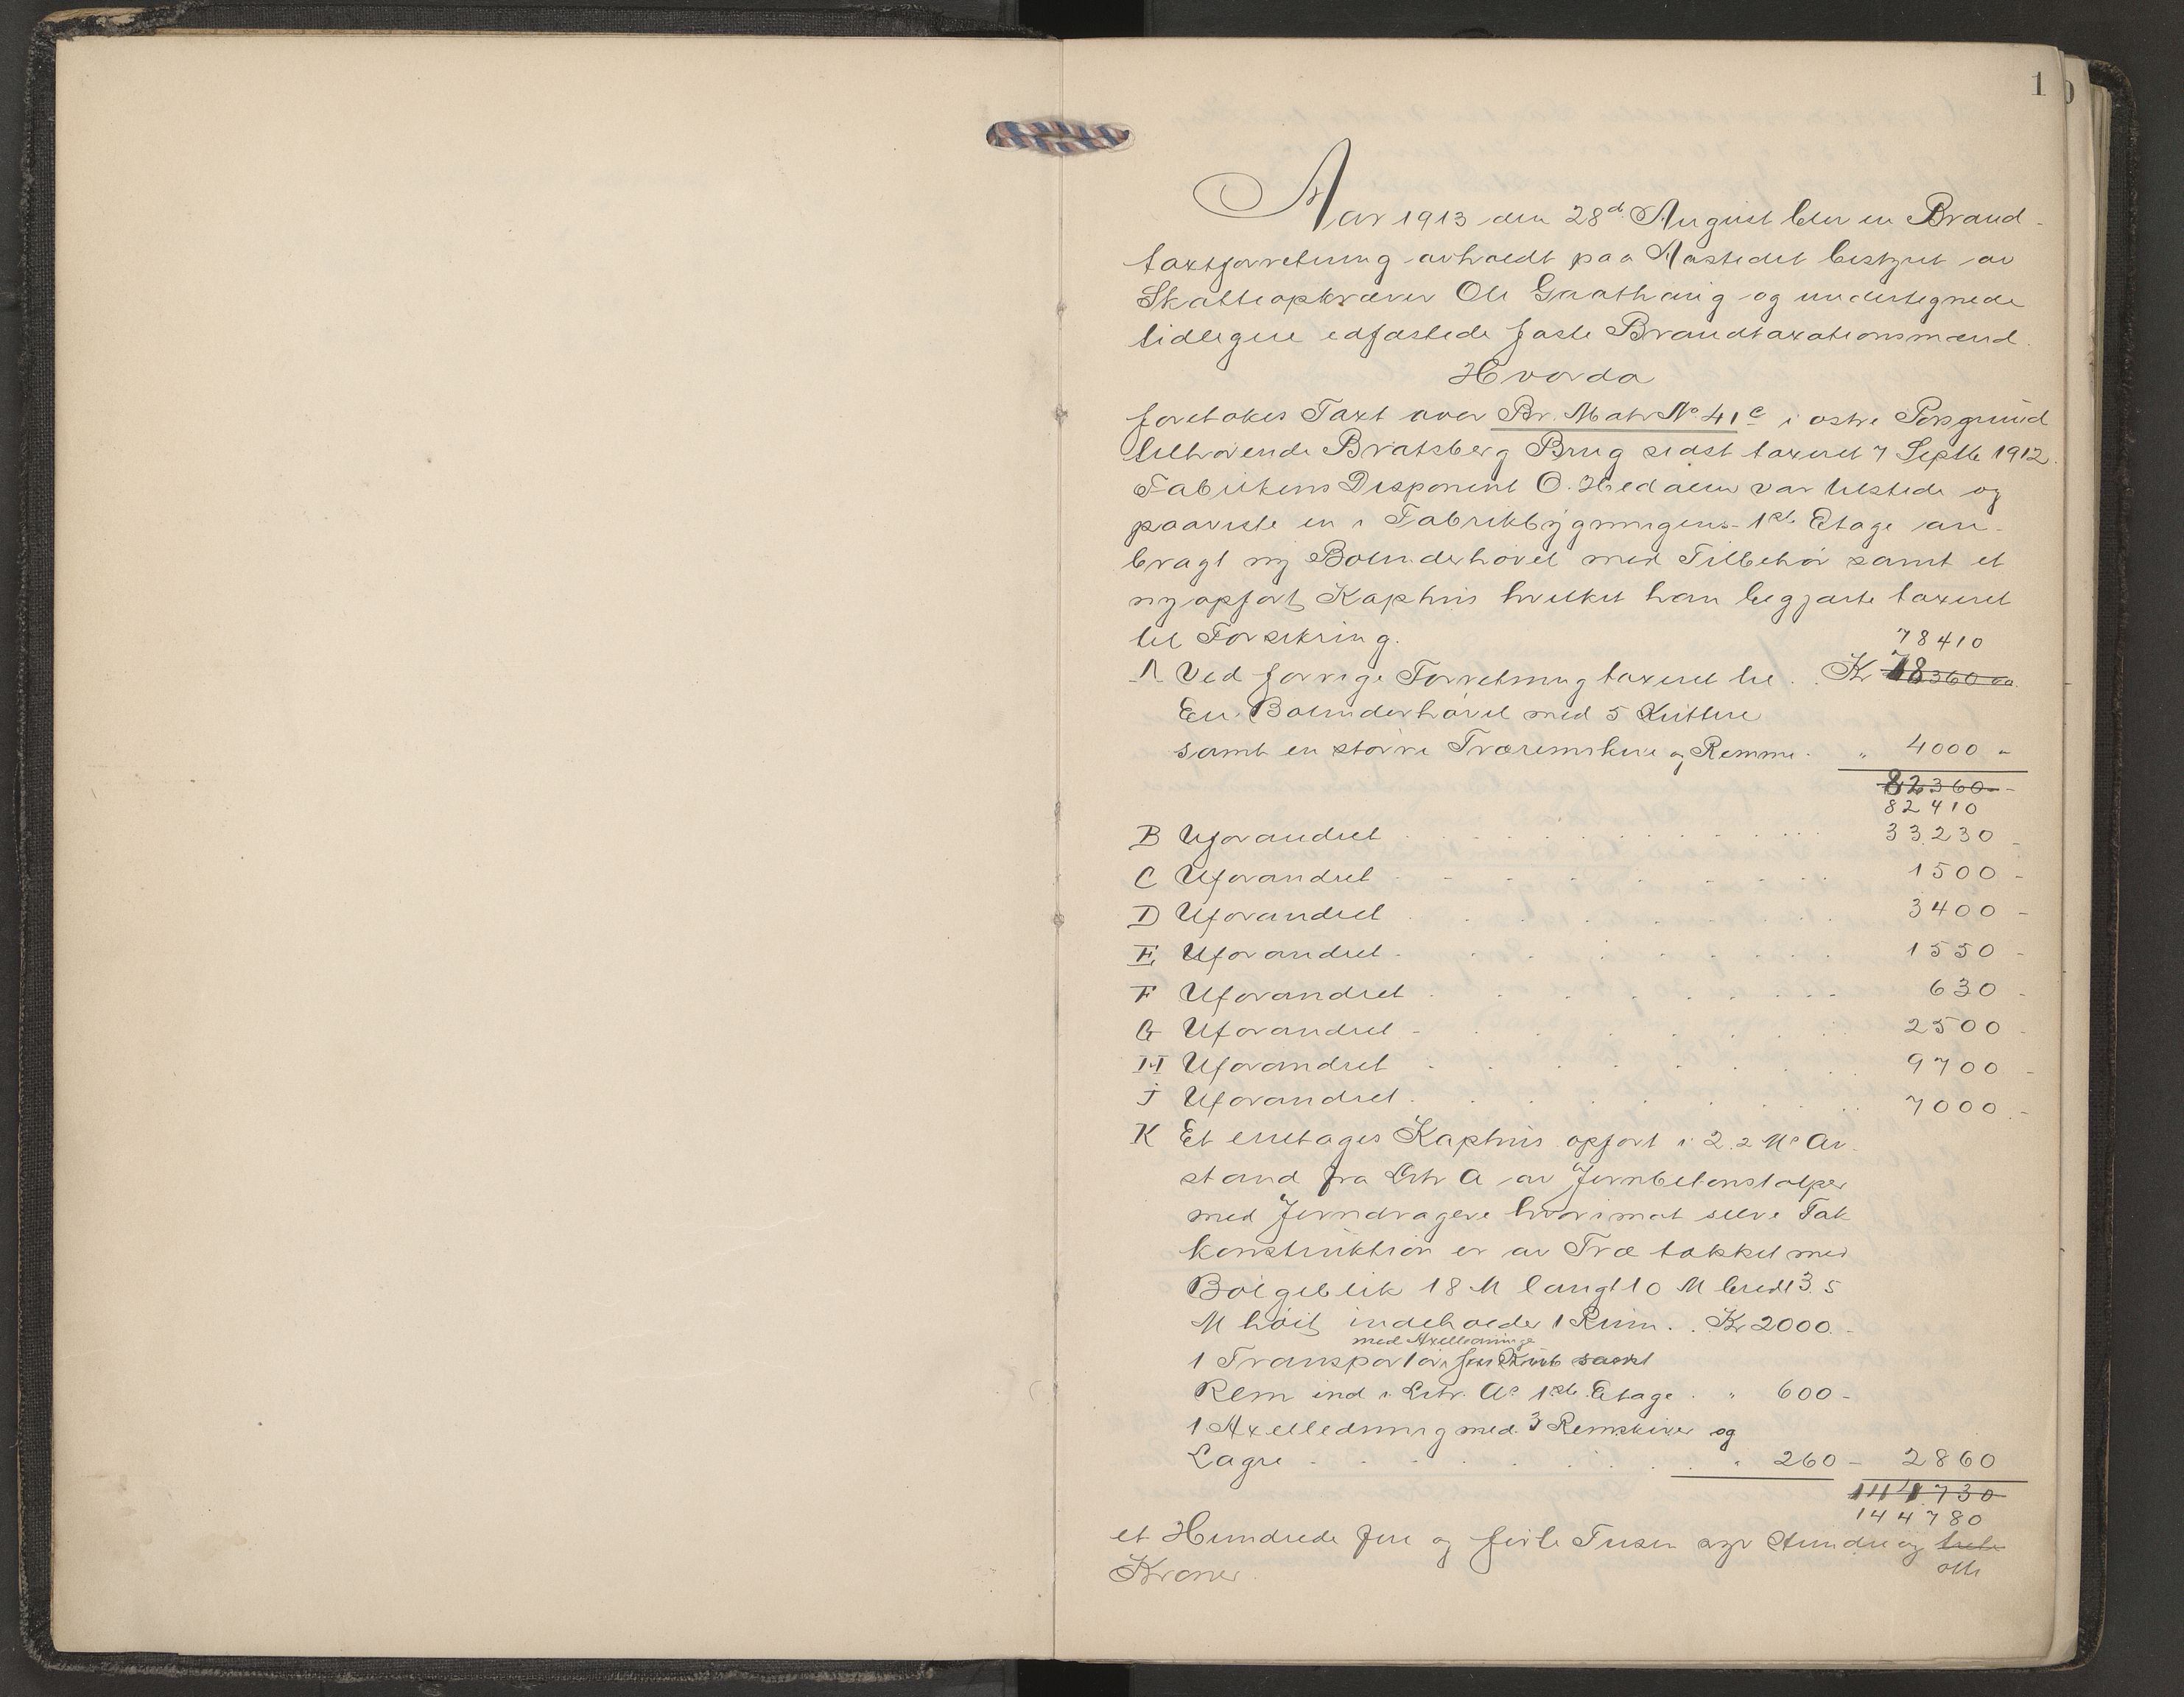 1
Aar 1913 den 28d August blev en Brand-
taxtforretning avholdt paa Aastedet bestyret av
Skatteopkræver Ole Gaatharig og undertegnede
tidligere edfæstede faste Brandtaxationsmænd.
Hvorda
foretokes Taxt over Br. Matr No. 41c i østre Porsgrund
tilhørende Bratsberg Brug sidst taxeret 7 Septb 1912.
Fabrikens Disponent O. Hedalen var tilstede og
paaviste en i Fabrikbygningens 1ste Etage an-
bragt ny Bolinderhøvel med Tilbehør samt et
ny opført Kaphus hvilket han begjærte taxeret
til Forsikring.
78410
A Ved forrige Forretning taxeret til . Kr 78360
En Bolinderhøvel med 5 Kuttere
samt en større Træremskive og Remme . " 4000 -
82360 -
82410
B Uforandret 33230 -
C Uforandret 1500 -
D Uforandret 3400 -
E Uforandret 1550 -
F Uforandret 630 -
G Uforandret 2500 -
H Uforandret 9700 -
J Uforandret 7000 -
K Et enetages Kaphus opført i 2.2 Ms Av-
stand fra Litr A av Jernbetonstolper
med Jerndragere hvorimot selve Tak
konstruktion er av Træ takket med
Bølgeblik 18 M langt 10 M bredt 3.5
M høit indeholder 1 Rum . . Kr 2000 -
med Axelledninge
1 Transportør for Kub samt
Rem ind i Litr. A's 1ste Etage . " 600 -
1 Axelledning med 3 Remskiver og
Lagre " 260 - 2860
144730
144780
et Hundrede fire og førte Tusen syv Hundre og treti
otti
Kroner.